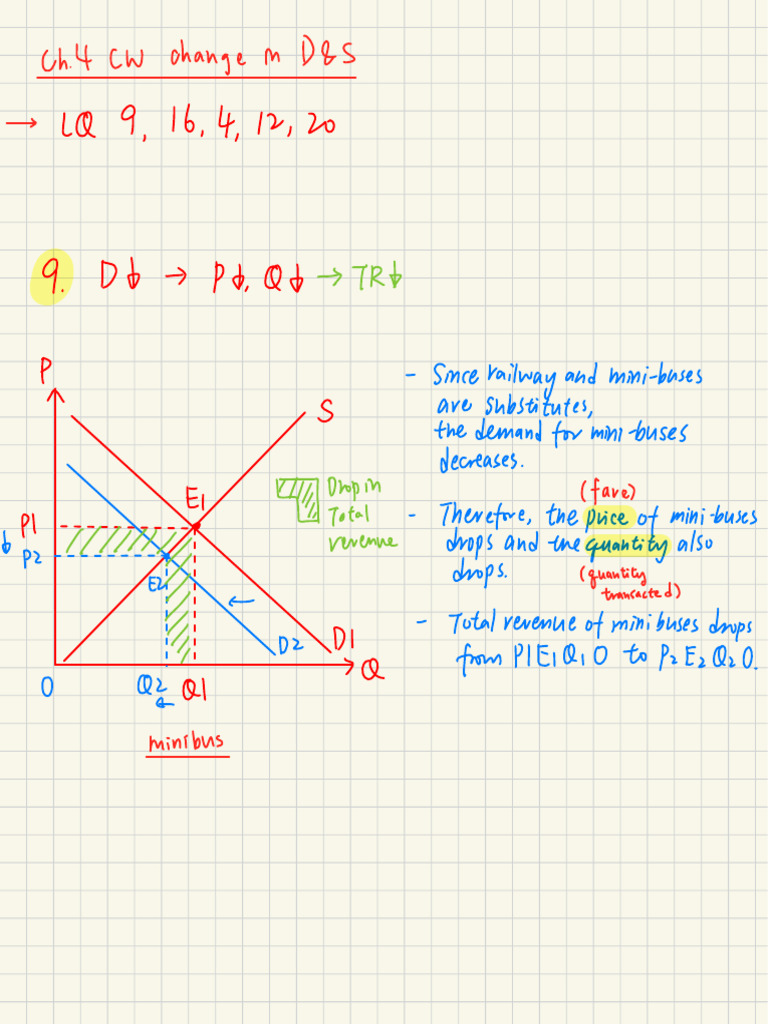 Ch.4 CW change in D&S
→ LQ 9, 16, 4, 12, 20
9. D↓ → P↓, Q↓ → TR↓
P
S
E1
P1
↓ P2
E2
D1
D2
Q
0
Q2
←
Q1
minibus
Drop in
Total
revenue
- Since railway and mini-buses
are substitutes,
the demand for mini-buses
decreases.
(fare)
- Therefore, the price of mini-buses
drops and the quantity also
drops.
(quantity
transacted)
- Total revenue of minibuses drops
from P1E1Q1O to P2E2Q2O.